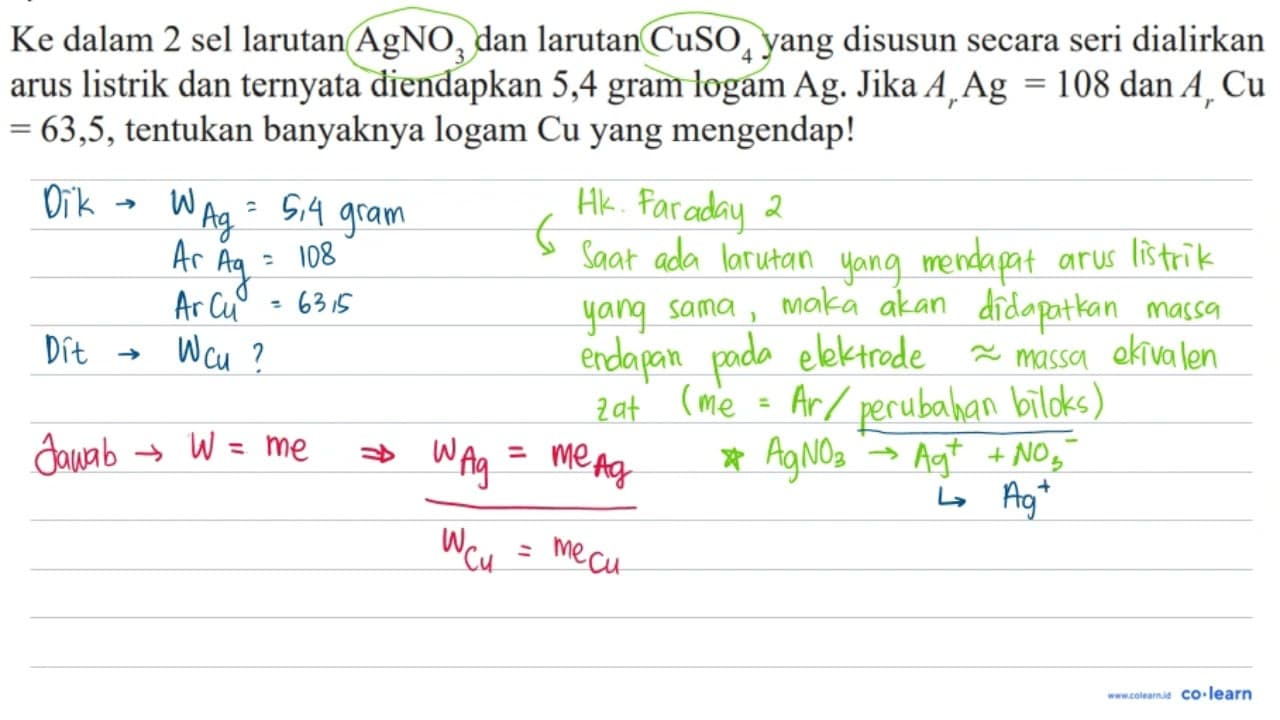 Ke dalam 2 sel larutan AgNO₃ dan larutan CuSO₄ yang disusun secara seri dialirkan
arus listrik dan ternyata diendapkan 5,4 gram logam Ag. Jika Aᵣ Ag = 108 dan Aᵣ Cu
= 63,5, tentukan banyaknya logam Cu yang mengendap!
Dik → W Ag = 5,4 gram
Ar Ag = 108
Ar Cu = 63,5
Dit → W Cu ?
Hk. Faraday 2
↳ Saat ada larutan yang mendapat arus listrik
yang sama, maka akan didapatkan massa
endapan pada elektrode ≈ massa ekivalen
zat (me = Ar/ perubahan biloks)
Jawab → W = me ⇒ W Ag = me Ag
W Cu = me Cu
* AgNO₃ → Ag⁺ + NO₃⁻
↳ Ag⁺
www.colearn.id co·learn